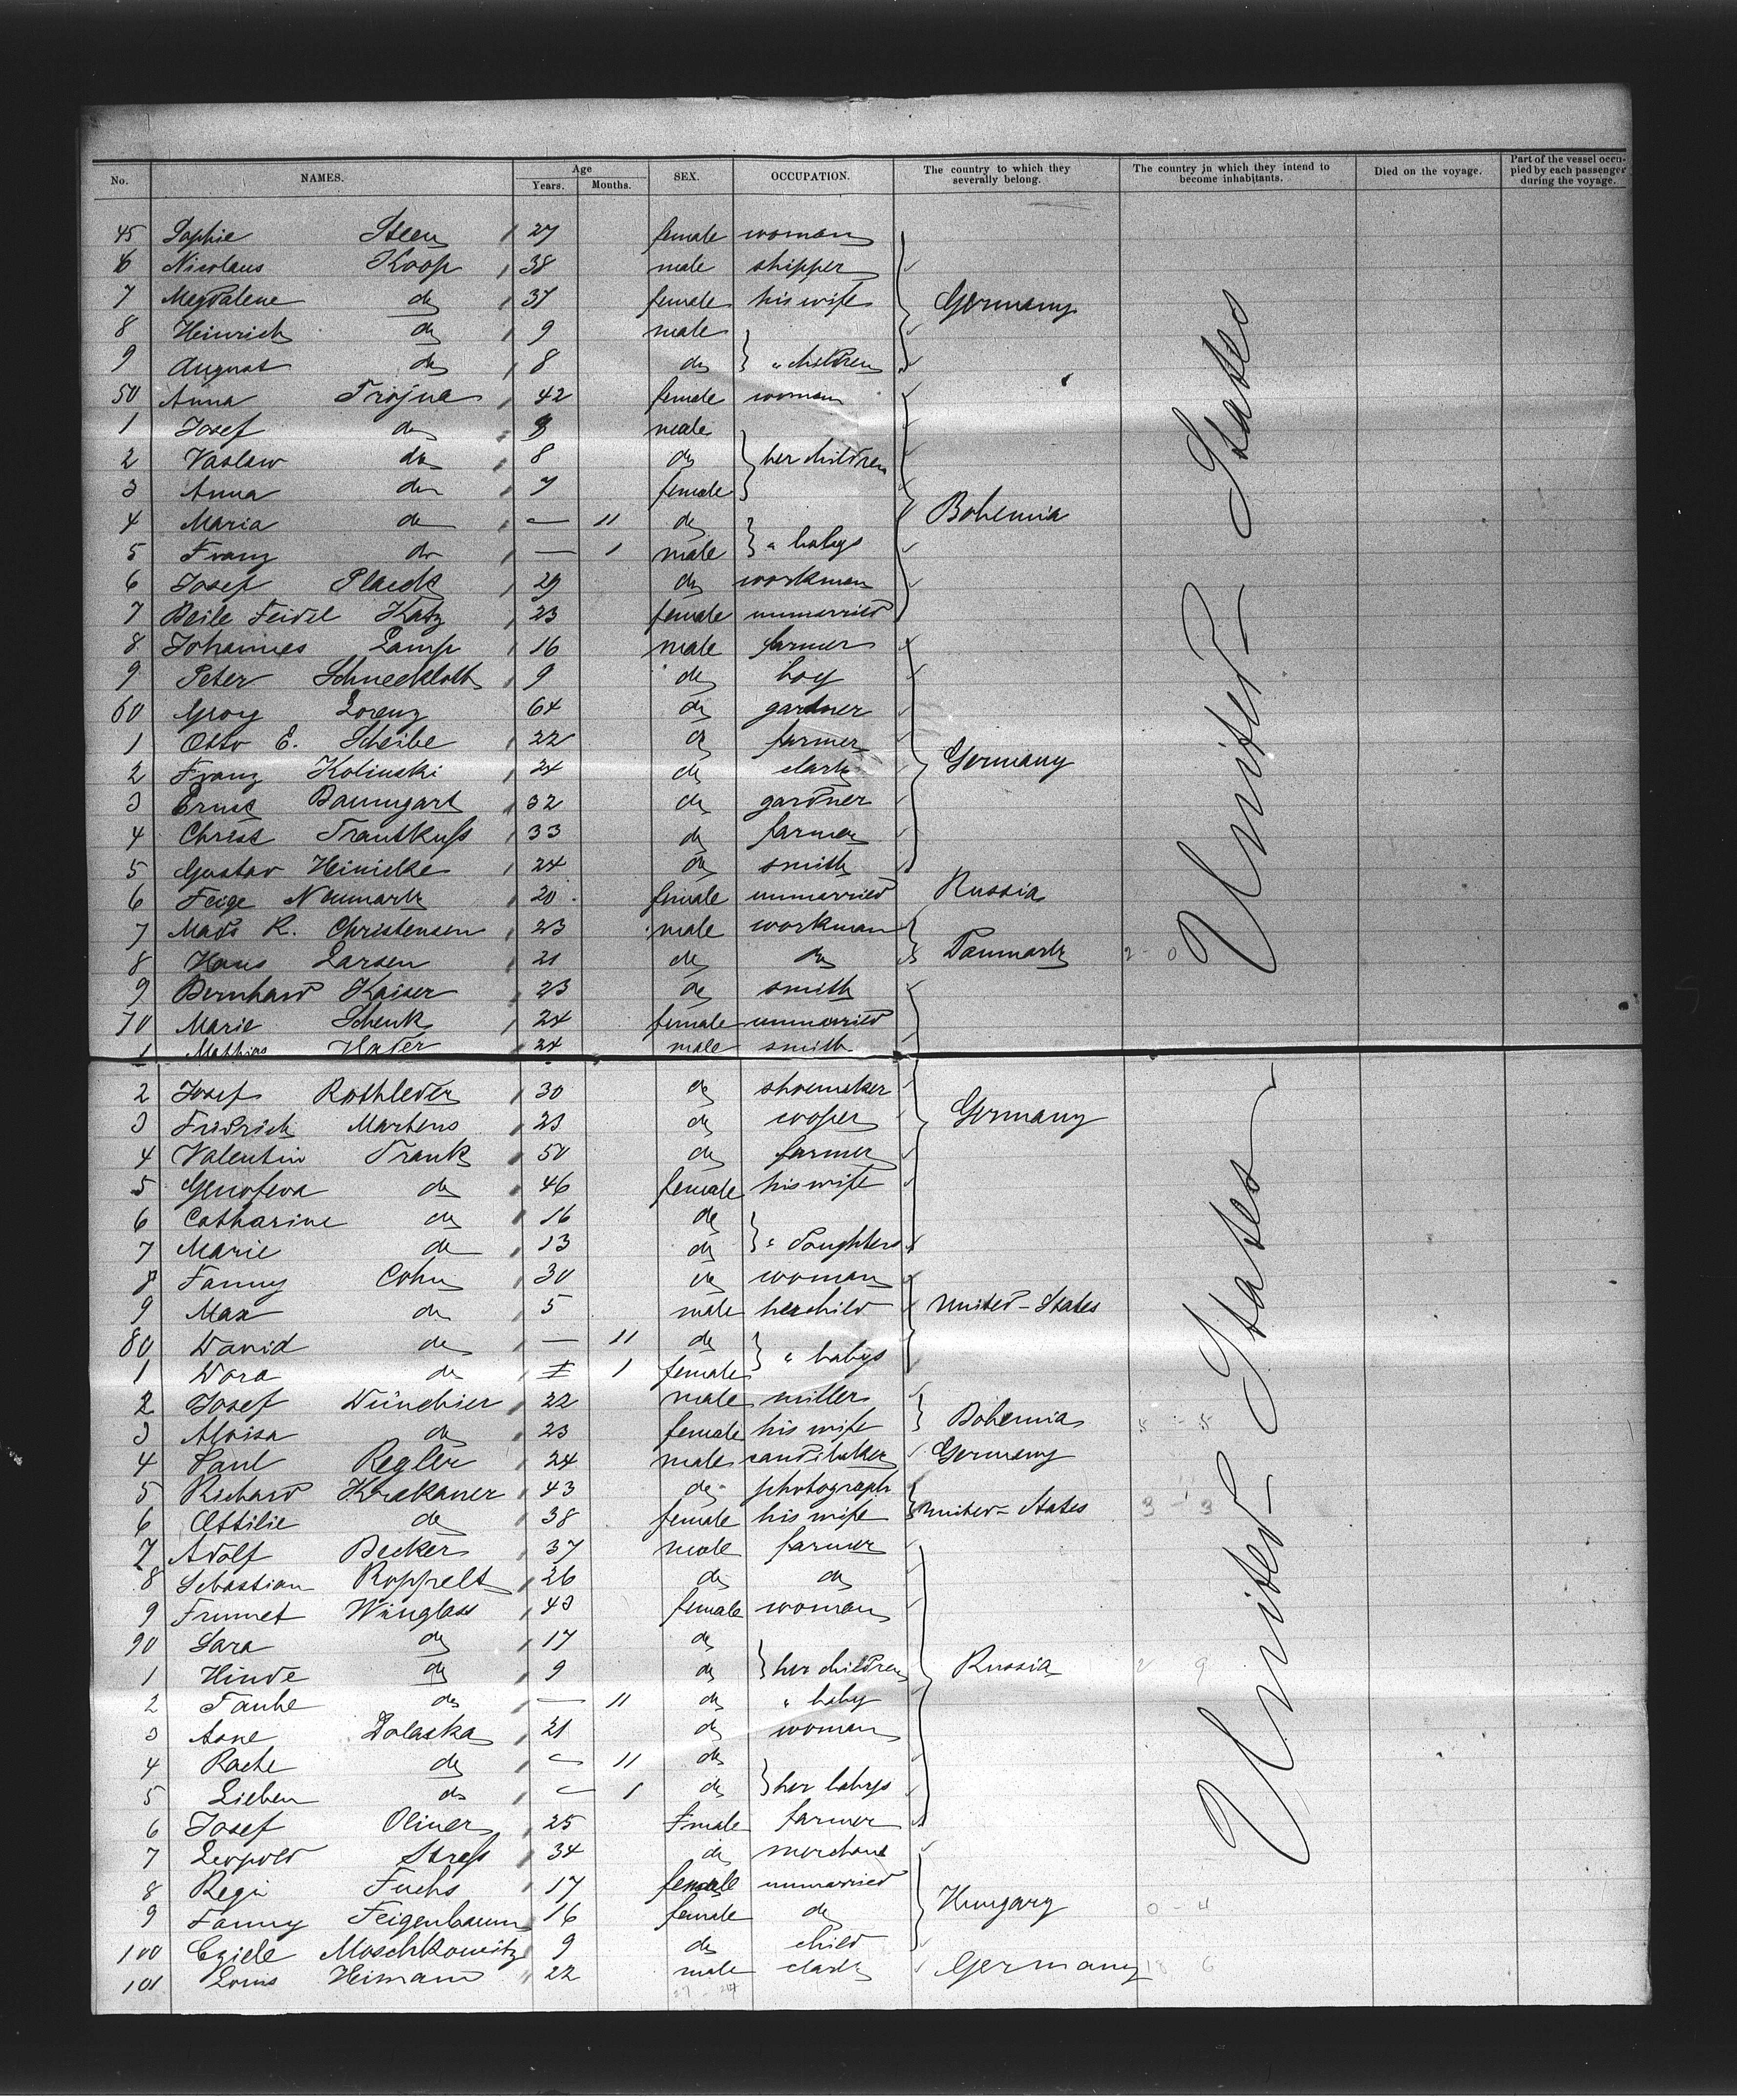 No. NAMES. Age Years. Months. SEX. OCCUPATION. The country to which they severally belong. The country in which they intend to become inhabitants. Died on the voyage. Part of the vessel occupied by each passenger during the voyage.
45 Sophie Steen 27 female woman
6 Nicolaus Koop 38 male shipper
7 Magdalene do 37 female his wife Germany
8 Heinrich do 9 male
9 August do 8 do " children
50 Anna Trojna 42 female woman
1 Josef do 9 male
2 Vaslaw do 8 do her children
3 Anna do 7 female
4 Maria do — 11 do Bohemia
5 Franz do — 1 male " babys
6 Josef 29 do workman
7 Beile Feidel Katz 23 female unmarried
8 Johannes Lamp 16 male farmer
9 Peter Schneekloth 9 do boy
60 Georg Lorenz 64 do gardner
1 Otto E. Scheibe 22 do farmer
2 Franz Kolinski 24 do clark Germany
3 Ernst Baumgart 32 do gardner
4 Christ Trautkuss 33 do farmer
5 Gustav Heinicke 24 do smith
6 Feige Neumark 20 female unmarried Russia
7 Mads R. Christensen 23 male workman
8 Hans Larsen 21 do do Danmark 2 - 0
9 Bernhard Kaiser 23 do smith
70 Marie Schenk 24 female unmarried
1 Mathias Hafer 24 male smith
United-States
2 Josef Rothleder 30 do shoemaker
3 Fridrich Martens 23 do cooper Germany
4 Valentin Frank 50 do farmer
5 Genofeva do 46 female his wife
6 Catharine do 16 do
7 Marie do 13 do " daughters
8 Fanny Cohn 30 do woman
9 Max do 5 male her child United-States
80 David do — 11 do
1 Dora do — 1 female " babys
2 Josef 22 male miller
3 Aloisa do 23 female his wife Bohemia 5 - 5
4 Paul Regler 24 male Germany
5 Richard Krakauer 43 do photograph
6 Ottilie do 38 female his wife United-States 3 - 3
7 Adolf Becker 37 male farmer
8 Sebastian Roppelt 26 do do
9 Frumet Winglass 43 female woman
90 Sara do 17 do
1 Hinde do 9 do her children Russia 2 9
2 Taube do — 11 do " baby
3 Asne Dolaska 21 do woman
4 do — 11 do
5 Lieben do — 1 do her babys
6 Josef Oliner 25 male farmer
7 Leopold Stress 34 do merchant
8 Regi Fuchs 17 female unmarried
9 Fanny Feigenbaum 16 female do Hungary 0 - 4
100 Moschkowitz 9 do child
101 Louis Heimann 22 male clark Germany 18 6
United-States